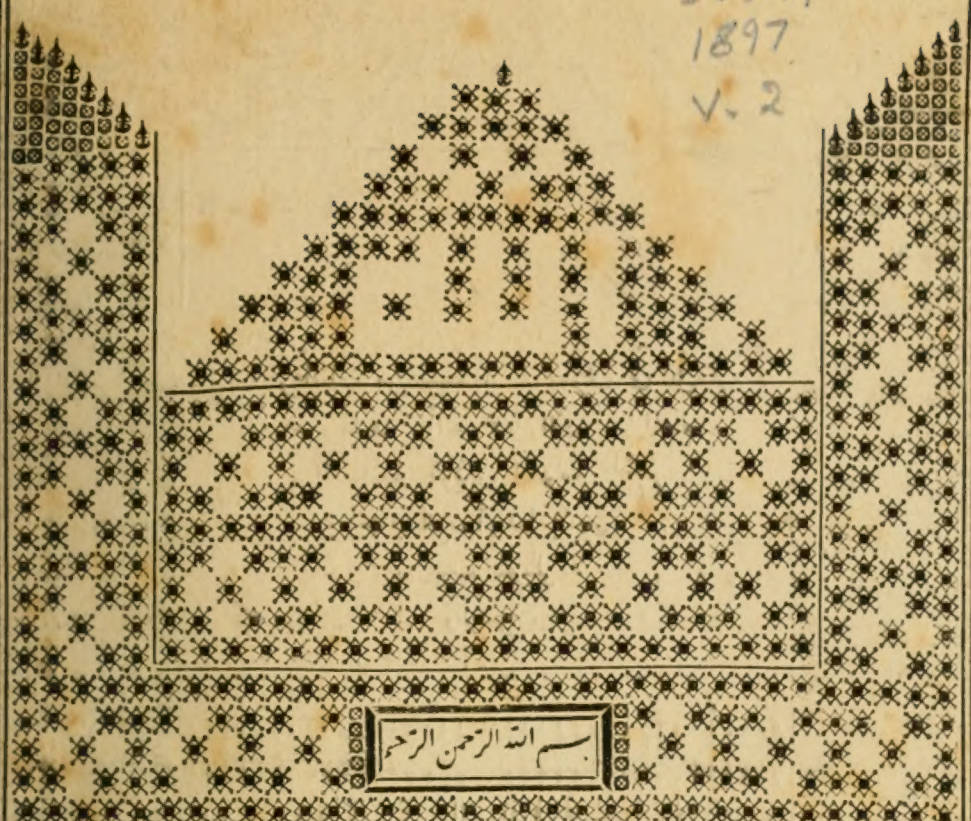 1897
V. 2
الله
بسم الله الرحمن الرحيم